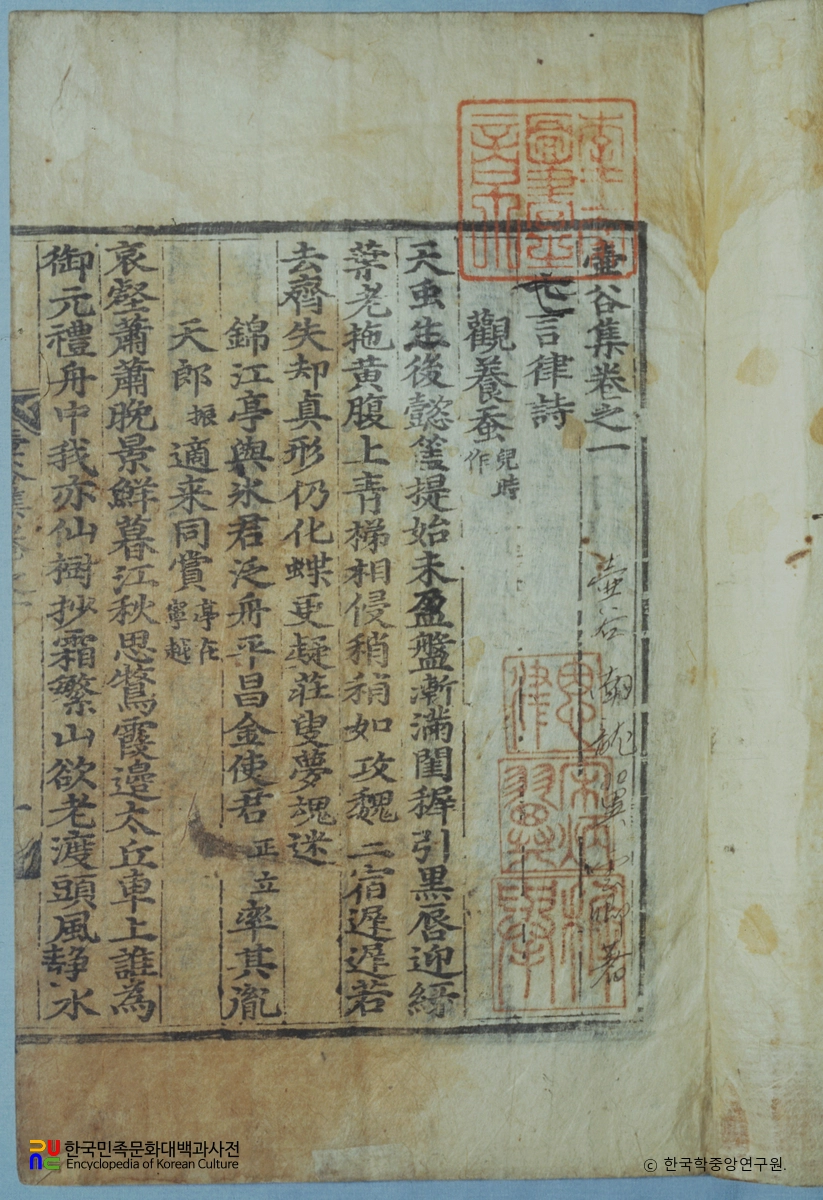 壷谷集卷之一
壺谷 南龍翼 著
七言律詩
觀養蚕 兒時作
天虫生後懿筐提始未盈盤漸滿閨穉引黒唇迎縟
葉老拖黄腹上青梯相侵稍稍如攻魏二宿遲遲若
去齊失却真形仍化蝶更疑莊叟夢魂迷
錦江亭與氷君泛舟平昌金使君正立率其胤
天郎振適来同賞亭在寧越
哀壑蕭蕭晩景鮮暮江秋思鶩霞邊太丘車上誰為
御元禮舟中我亦仙樹抄霜繁山欲老渡頭風静水
한국민족문화대백과사전
Encyclopedia of Korean Culture
© 한국학중앙연구원.